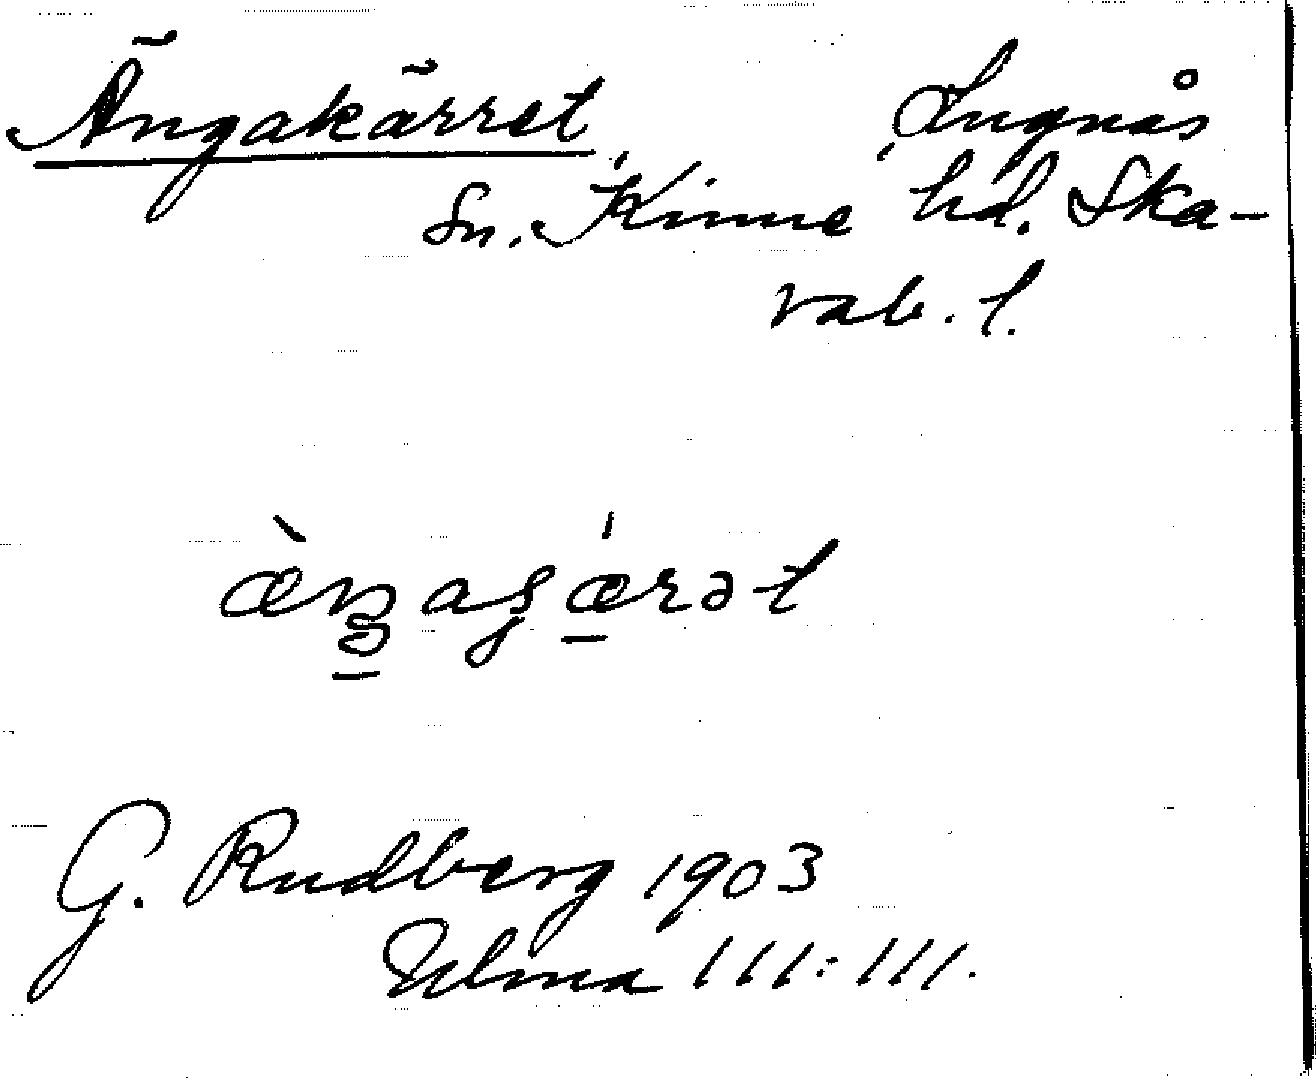 Ängakärret Lugnås
Sn. Kinne hd. Ska-
rab. l.
æ̀ŋaʂǽrət
G. Rudberg 1903
Ulma 111:111.